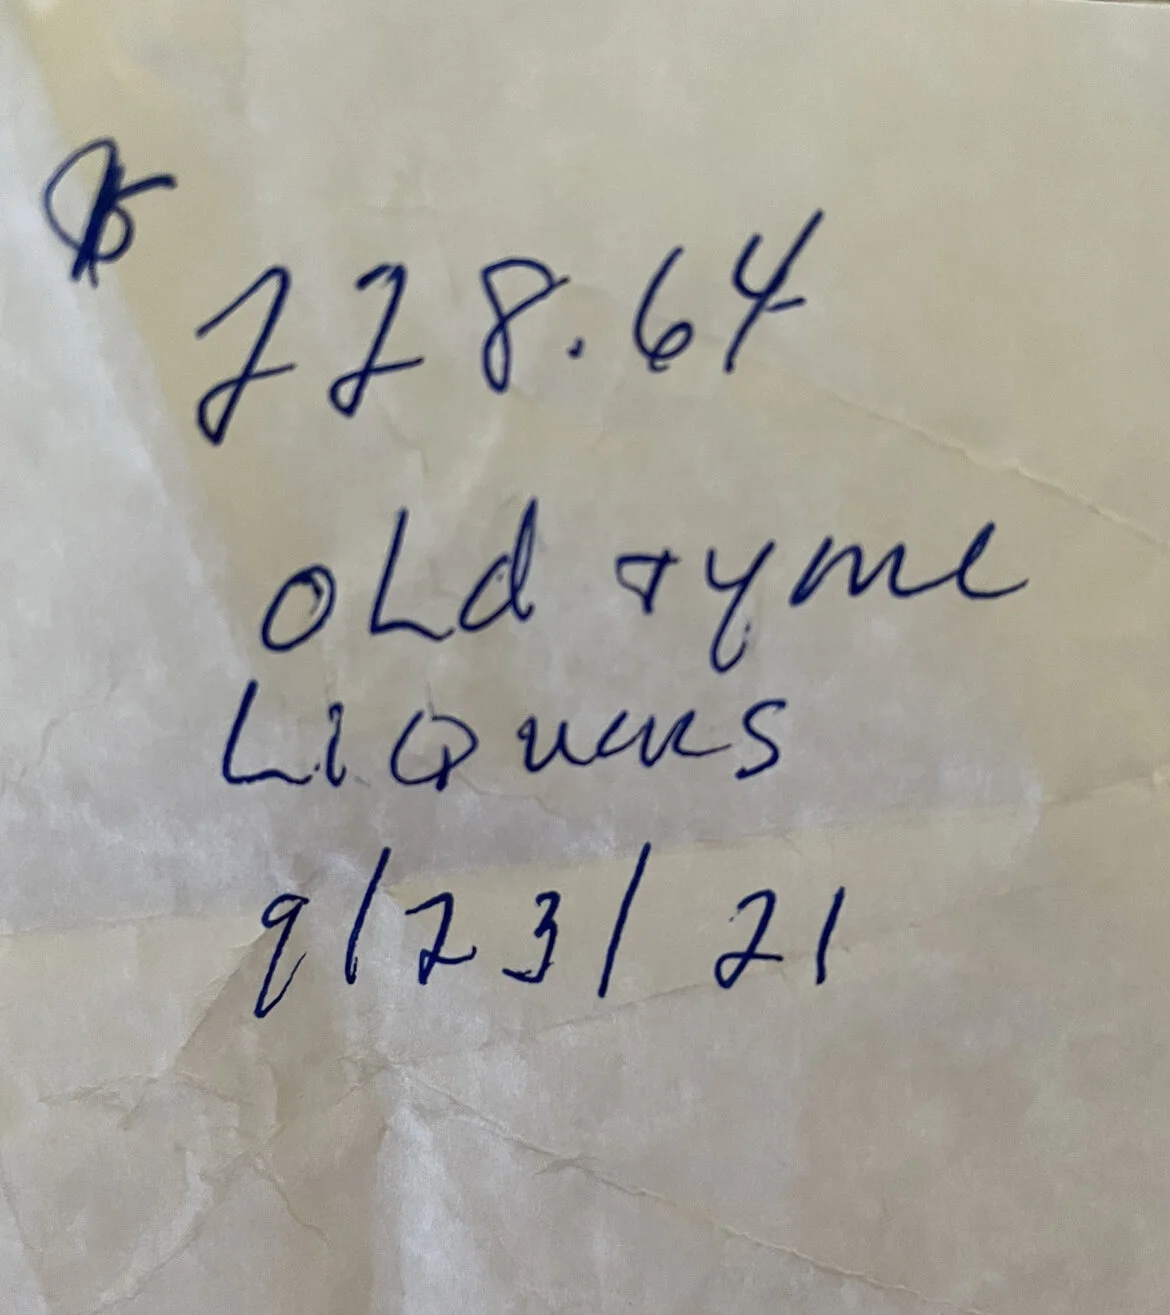 $
228.64
old tyme
Liquers
9/23/21